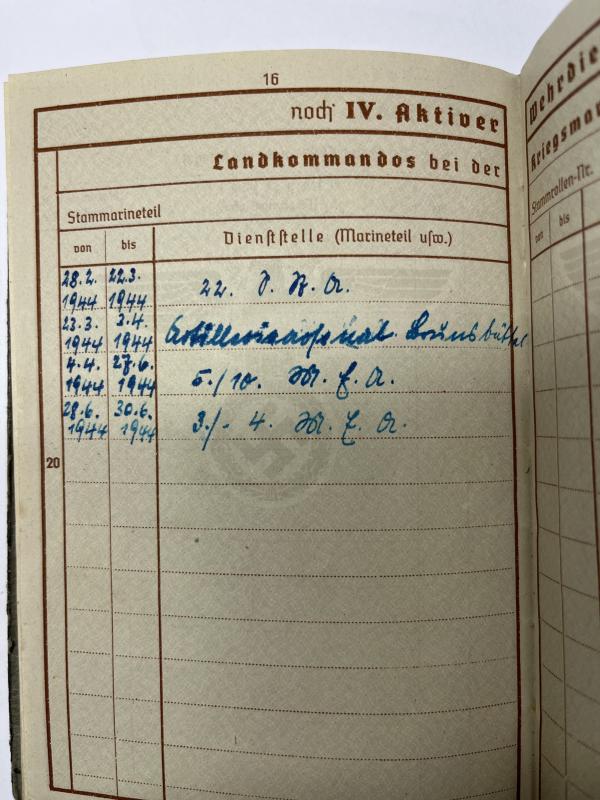 16
noch IV. Aktiver
Landkommandos bei der
Stammarineteil
von bis Dienststelle (Marineteil usw.)
28.2. 22.3. 22. S. St. A.
1944 1944
23.3. 3.4. Artilleriearsenal Brunsbüttel
1944 1944
4.4. 27.6. 5./10. M. E. A.
1944 1944
28.6. 30.6. 3./- 4. M. E. A.
1944 1944
20
Wehrdie
Kriegsmar
Stammrollen-Nr.
von bis